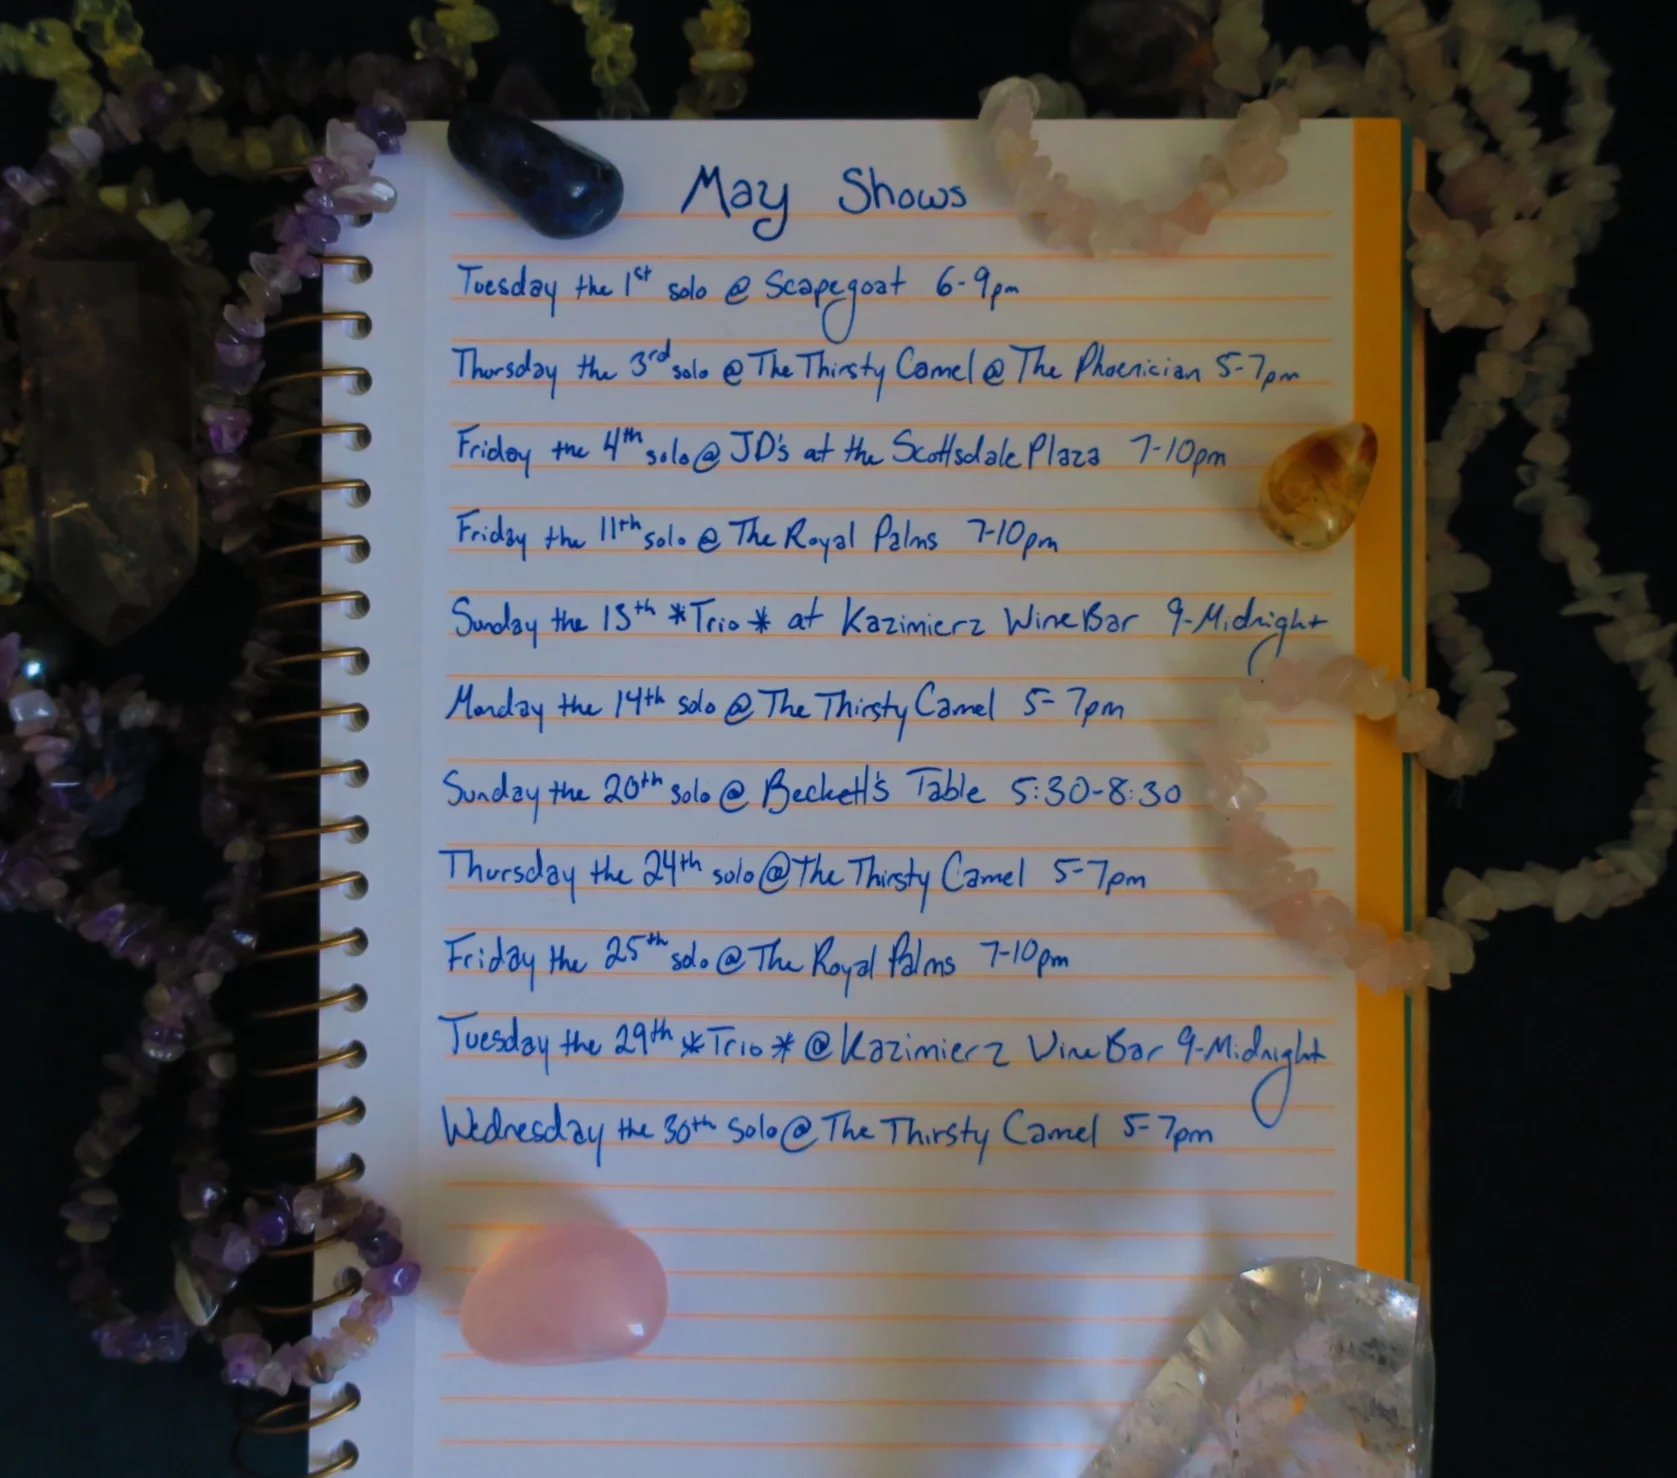 May Shows
Tuesday the 1st solo @ Scapegoat 6-9pm
Thursday the 3rd solo @ The Thirsty Camel @ The Phoenician 5-7pm
Friday the 4th solo @ JD's at the Scottsdale Plaza 7-10pm
Friday the 11th solo @ The Royal Palms 7-10pm
Sunday the 13th *Trio* at Kazimierz Wine Bar 9-Midnight
Monday the 14th solo @ The Thirsty Camel 5-7pm
Sunday the 20th solo @ Beckett's Table 5:30-8:30
Thursday the 24th solo @ The Thirsty Camel 5-7pm
Friday the 25th solo @ The Royal Palms 7-10pm
Tuesday the 29th *Trio* @ Kazimierz Wine Bar 9-Midnight
Wednesday the 30th solo @ The Thirsty Camel 5-7pm